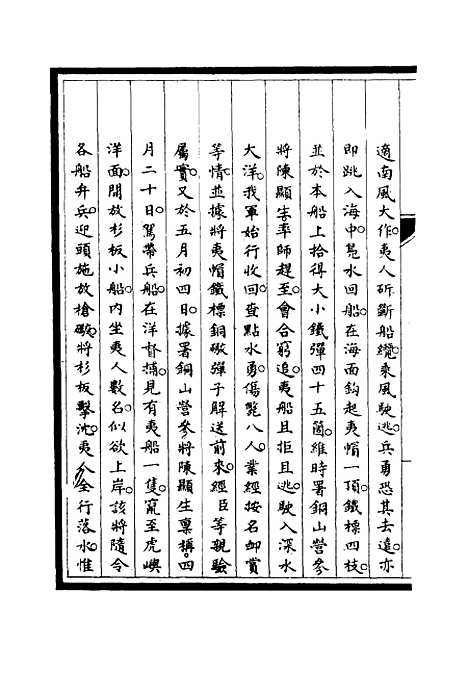 適南風大作。夷人斫斷船纜。乘風駛逃。兵勇恐其去遠。亦
即跳入海中。鳧水回船。在海面鈎起夷帽一頂。鐵標四枝。
並於本船上拾得大小鐵彈四十五箇。維時署銅山營參
將陳顯生率師趕至。會合窮追。夷船且拒且逃。駛入深水
大洋。我軍始行收回。查點水勇。傷斃八人。業經按名卹賞
等情。並據將夷帽鐵標銅礮彈子解送前來。經臣等親驗
屬實。又於五月初四日。據署銅山營參將陳顯生稟稱。四
月二十日。駕帶兵船在洋督捕。見有夷船一隻。竄至虎嶼
洋面。開放杉板小船。內坐夷人數名。似欲上岸。該將隨令
各船弁兵。迎頭施放槍礮。將杉板擊沈。夷人全行落水。惟